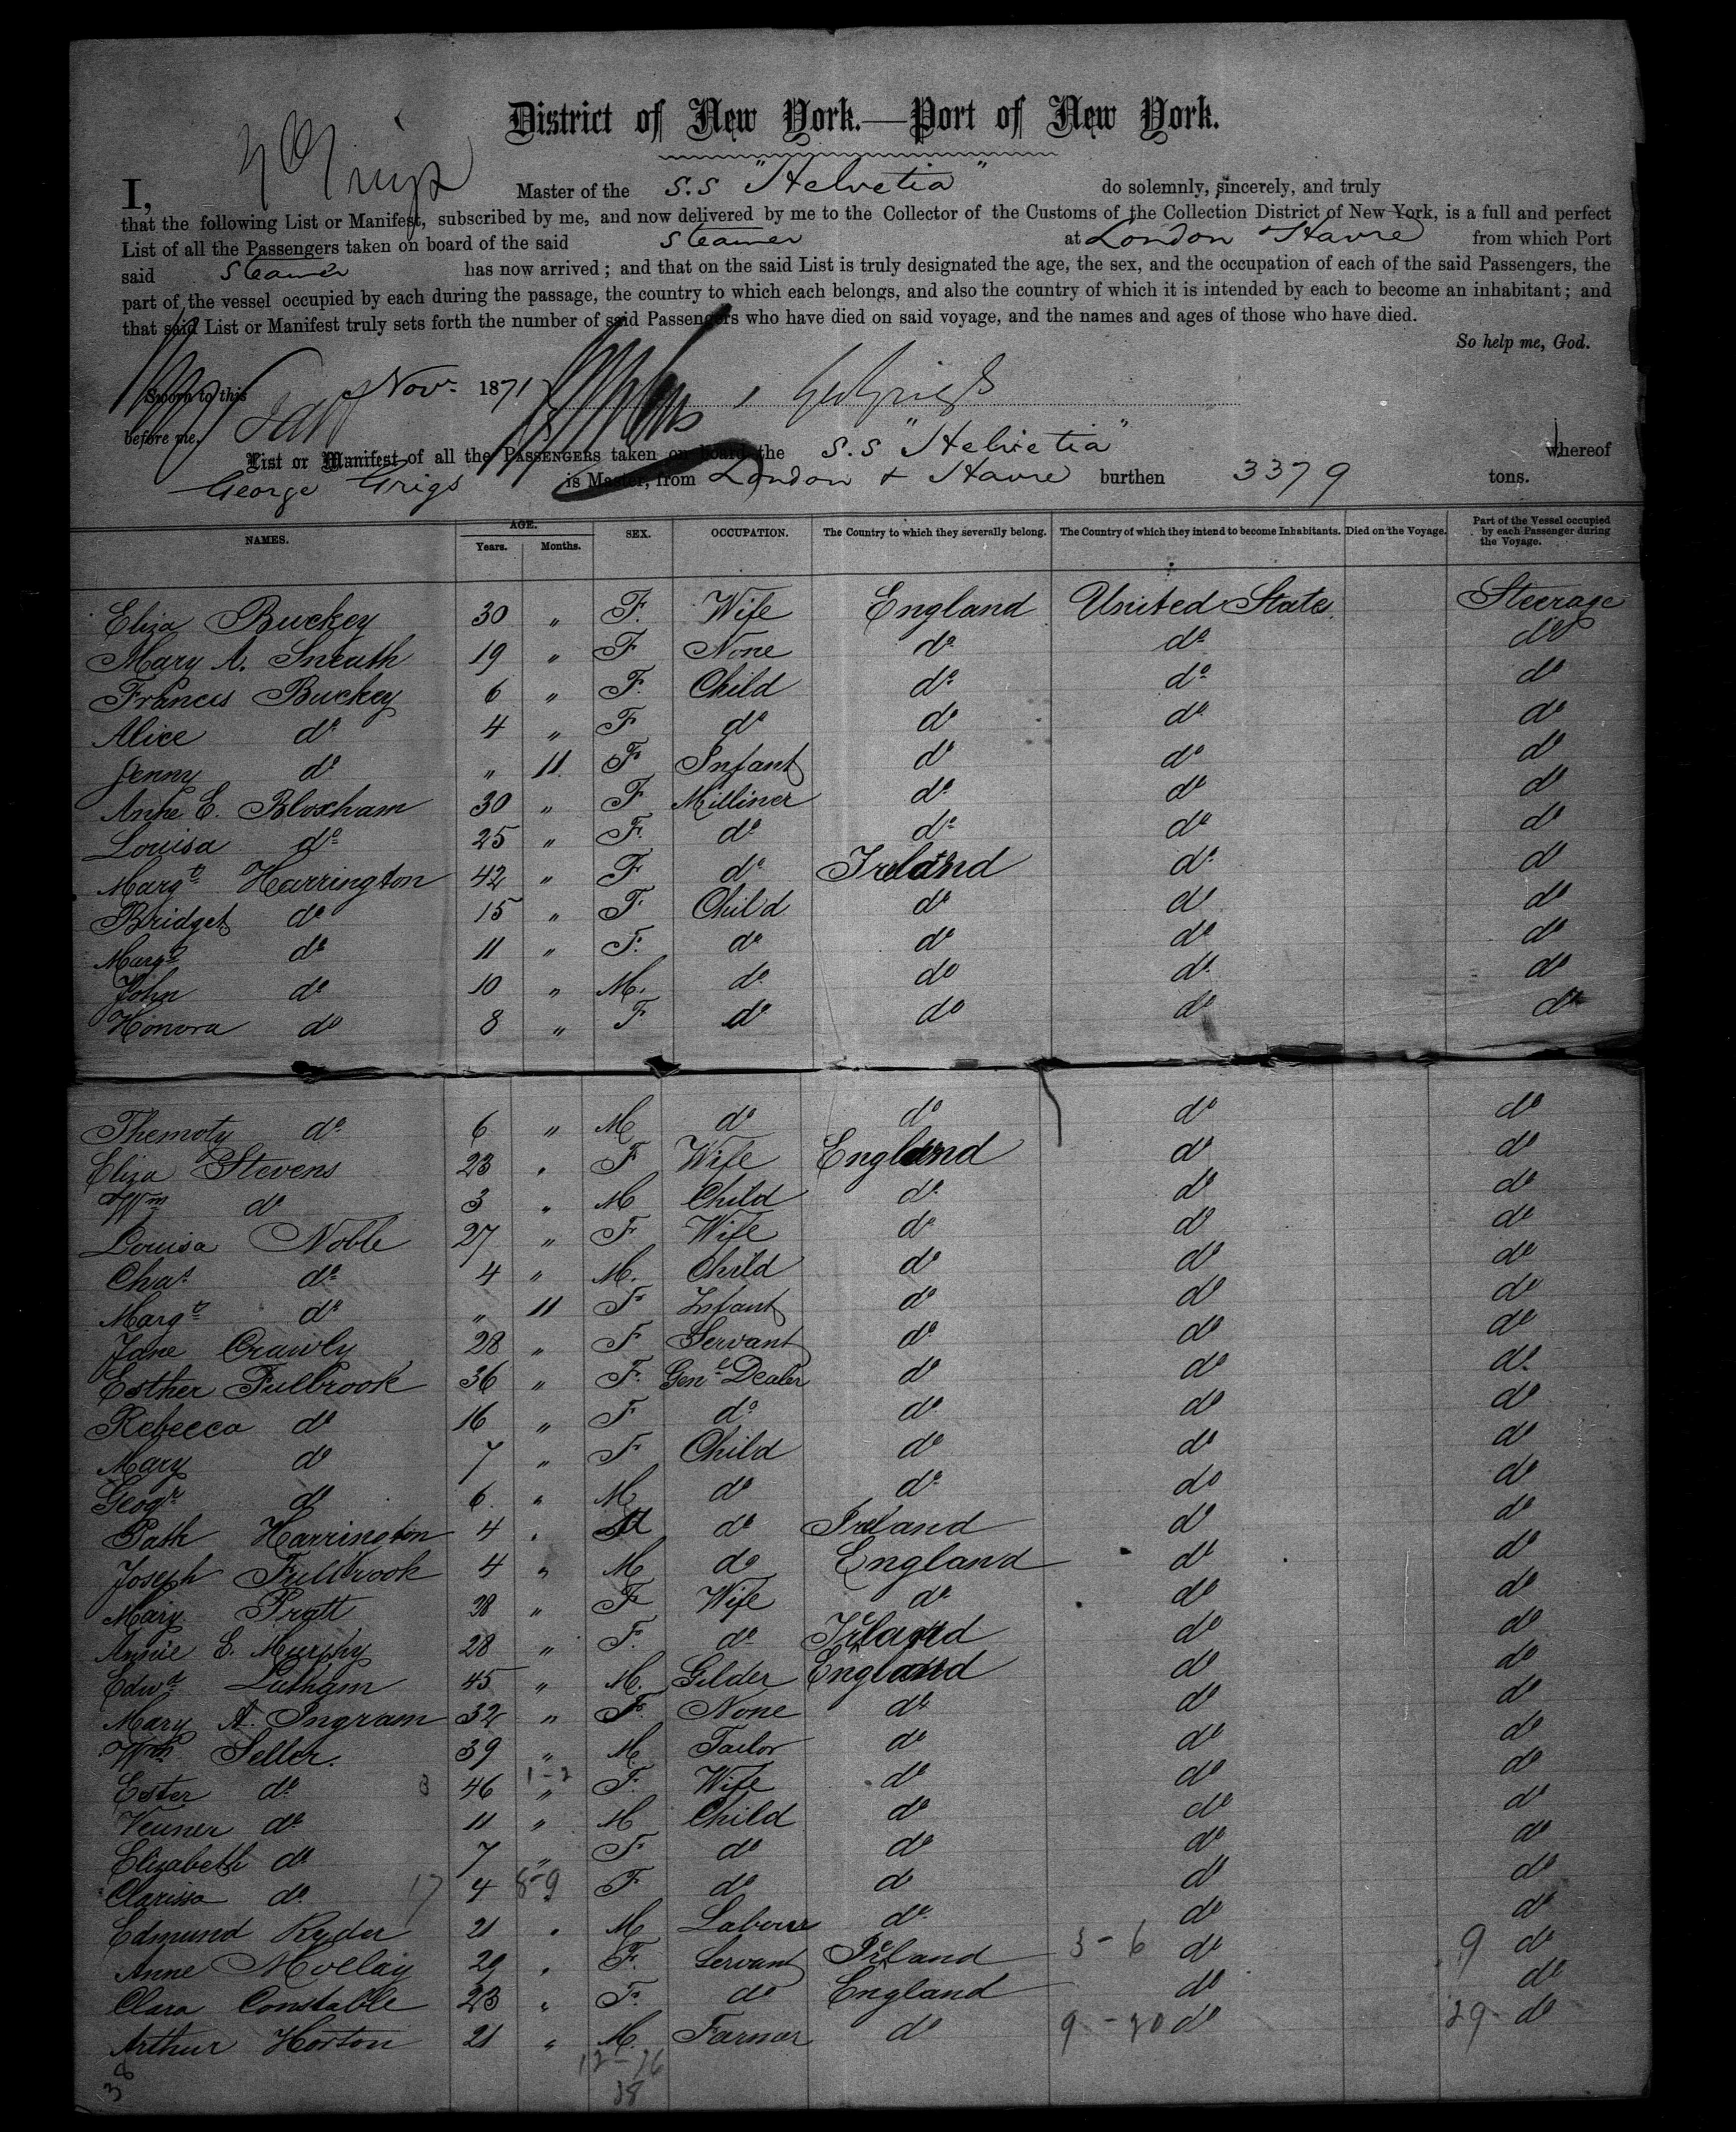 District of New York.—Port of New York.
I, Master of the S.S "Helvetia" do solemnly, sincerely, and truly
that the following List or Manifest, subscribed by me, and now delivered by me to the Collector of the Customs of the Collection District of New York, is a full and perfect
List of all the Passengers taken on board of the said Steamer at London Havre from which Port
said Steamer has now arrived; and that on the said List is truly designated the age, the sex, and the occupation of each of the said Passengers, the
part of the vessel occupied by each during the passage, the country to which each belongs, and also the country of which it is intended by each to become an inhabitant; and
that said List or Manifest truly sets forth the number of said Passengers who have died on said voyage, and the names and ages of those who have died.
So help me, God.
Sworn to this Nov. 1871
before me,
List or Manifest of all the PASSENGERS taken on board the S.S "Helvetia" whereof
George Grigs is Master, from London & Havre burthen 3379 tons.
NAMES. AGE. Years. Months. SEX. OCCUPATION. The Country to which they severally belong. The Country of which they intend to become Inhabitants. Died on the Voyage. Part of the Vessel occupied by each Passenger during the Voyage.
Eliza Buckey 30 " F. Wife England United States Steerage
Mary A. Sneath 19 " F None do do do
Francis Buckey 6 " F. Child do do do
Alice do 4 " F do do do do
Jenny do " 11 F Infant do do do
Anne E. Bloxham 30 " F Milliner do do do
Louisa do 25 " F. do do do do
Margt Harrington 42 " F do Ireland do do
Bridget do 15 " F Child do do do
Margt do 11 " F. do do do do
John do 10 " M. do do do do
Honora do 8 " F do do do do
Themoty do 6 " M do do do do
Eliza Stevens 23 " F Wife England do do
Wm do 3 " M Child do do do
Louisa Noble 27 " F Wife do do do
Chas do 4 " M. Child do do do
Margt do " 11 F Infant do do do
Jane Crawly 28 " F Servant do do do
Esther Fulbrook 36 " F. Genl Dealer do do do
Rebecca do 16 " F do do do do
Mary do 7 " F Child do do do
Geoge do 6 " M do do do do
Path Harrington 4 " M do Ireland do do
Joseph Fullbrook 4 " M do England do do
Mary Pratt 38 " F Wife do do do
Annie E. Murphy 28 " F. do Ireland do do
Edwd Latham 45 " M. Gilder England do do
Mary A. Ingram 32 " F. None do do do
Wm Seller. 39 " M. Tailor do do do
Ester do 3 46 1-2 " F. Wife do do do
Veuner do 11 " M Child do do do
Elizabeth do 7 " F do do do do
Clarissa do 17 4 8-9 " F do do do do
Edmund Ryder 21 " M Labourer do do do
Anne Mollay 29 " F. Servant Ireland 3-6 do 9 do
Clara Constable 23 " F. do England do do
Arthur Horton 21 " M. Farmar do 9-20 do 29 do
12-26
38 38